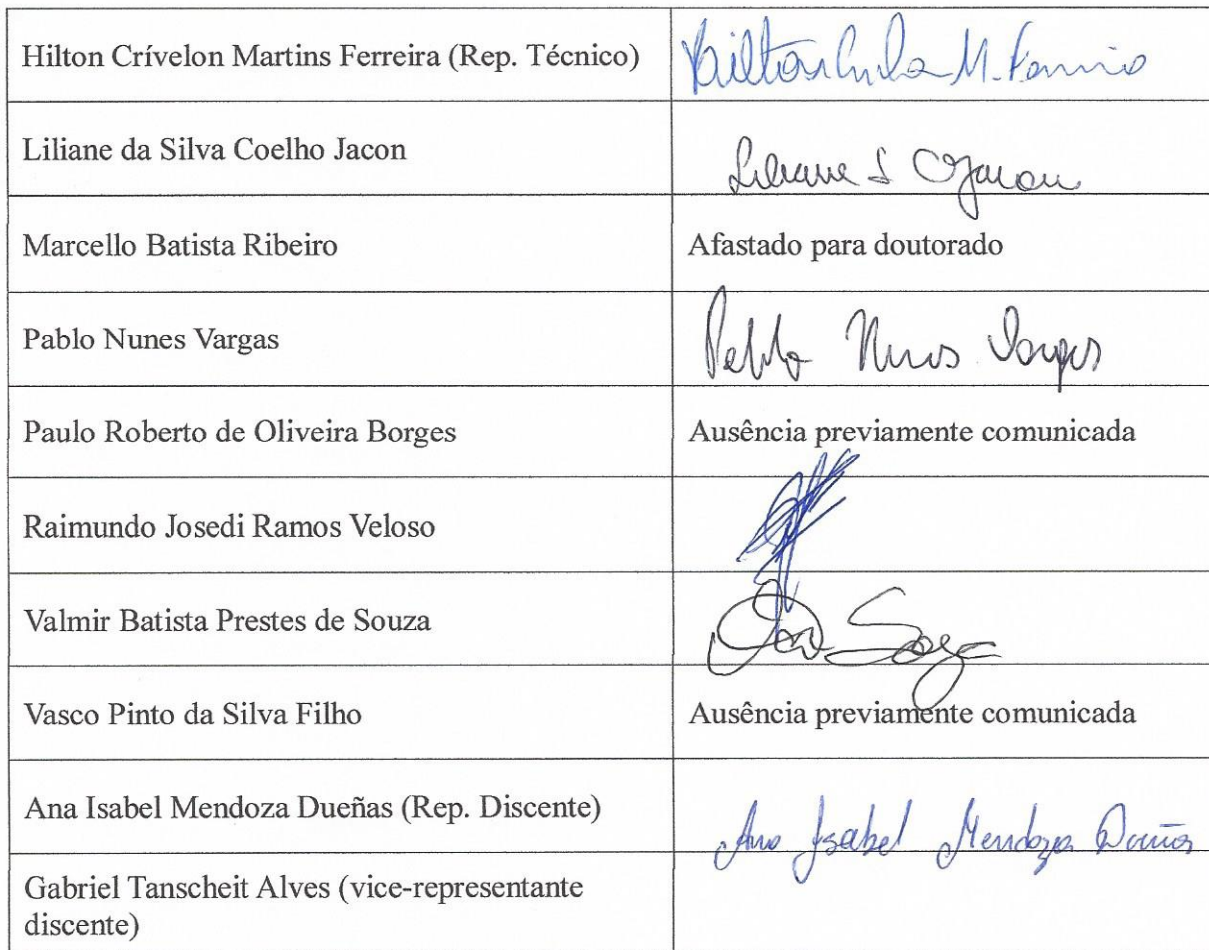 Hilton Crívelon Martins Ferreira (Rep. Técnico)
Liliane da Silva Coelho Jacon
Liliane S CJacon
Marcello Batista Ribeiro
Afastado para doutorado
Pablo Nunes Vargas
Pablo Nunes Vargas
Paulo Roberto de Oliveira Borges
Ausência previamente comunicada
Raimundo Josedi Ramos Veloso
Valmir Batista Prestes de Souza
Vasco Pinto da Silva Filho
Ausência previamente comunicada
Ana Isabel Mendoza Dueñas (Rep. Discente)
Ana Isabel Mendoza Dueñas
Gabriel Tanscheit Alves (vice-representante
discente)